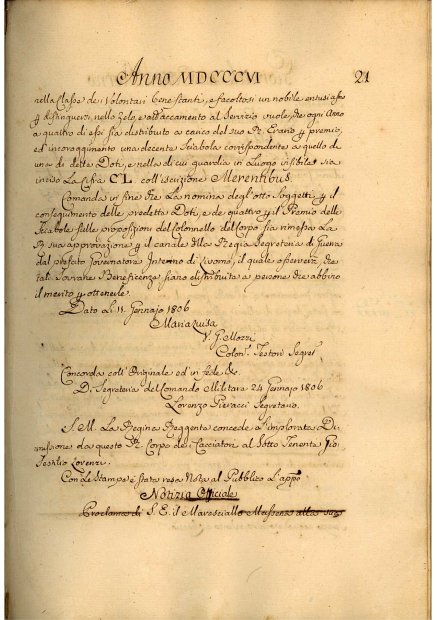 Anno MDCCCVI 21
nella Classe de i Volontari benestanti, e facoltosi un nobile entusiasmo
p distinguersi nello Zelo, e attaccamento al Servizio vuole, che ogni Anno
a quattro di essi sia distribuito a carico del suo R. Erario p premio,
ed incoraggimento una decente Sciabola corrispondente a quello di
una di dette Doti, e nella di cui guardia in Luogo visibile sia
inciso La Cifra CL coll'iscrizione Merentibus.
Comanda in fine che La nomina degl'otto Soggetti p il
conseguimento delle predette Doti, e de quattro p il Premio delle
Sciabole sulle proposizioni del Colonnello del Corpo sia rimessa La
R. sua approvazione p il canale della Regia Segreteria di Guerra
dal prefato Governatore Interino di Livorno, il quale osserverà che
tali Sovrane Beneficenze siano distribuite a persone che abbino
il merito p ottenerle.
Dato li 11. Gennajo 1806
Maria Luisa
V. G. Mozzi
Colon. Testori Segret.
Concorda coll'Originale ed in fede &c.
D. Segreteria del Comando Militare 24 Gennajo 1806
Lorenzo Pieracci Segretario.
S. M. La Regina Reggente concede L'implorata Di-
missione da questo R. Corpo de i Cacciatori al Sotto Tenente
Teofilo Lorenzi.
Con Le Stampe è stata resa Nota al Pubblico L'app.
Notizia Officiale
Proclama di S. E. il Maresciallo Massena alla sua